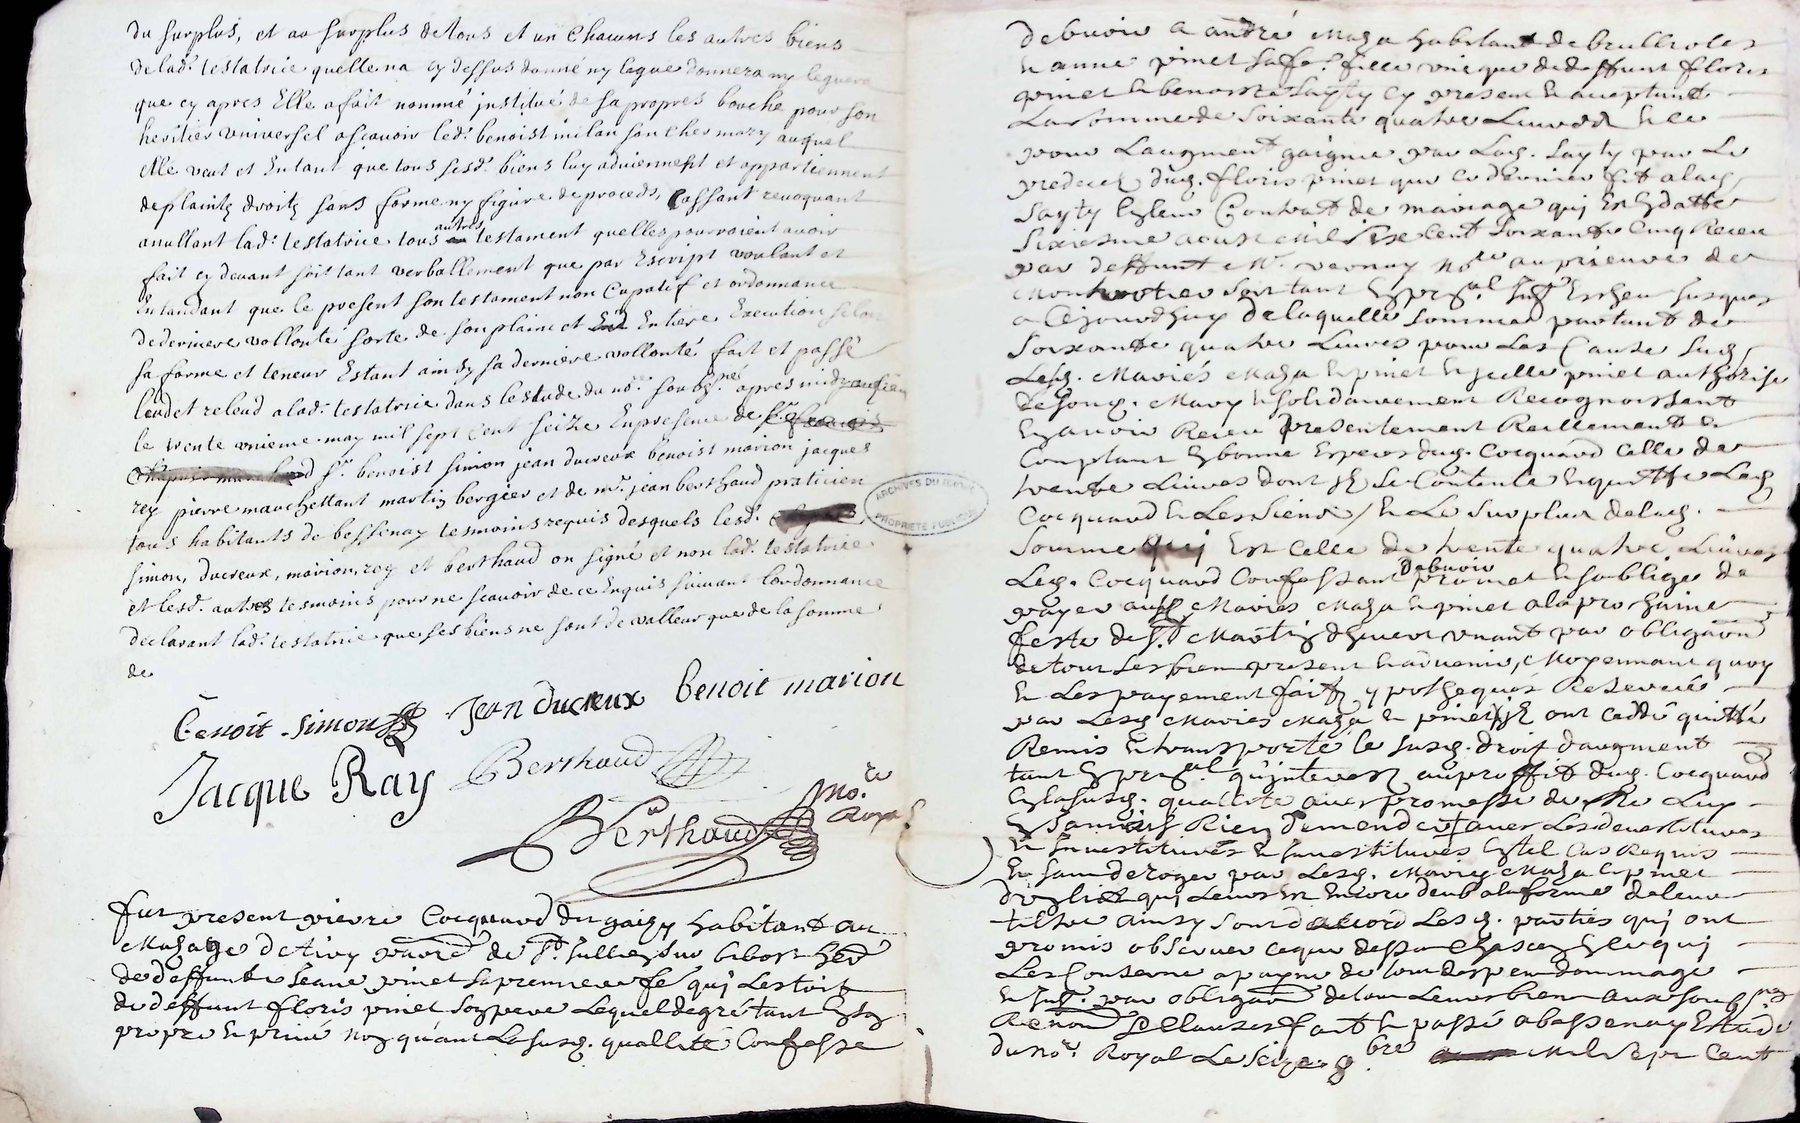 du surplus, et au surplus de tous et un chacuns les autres biens
de lad. testatrice quelle na cy dessus donné ny legue donnera ny leguera
que cy apres Elle a fait nommé jnstitué de sa propres bouche pour son
heritier vniversel ascavoir led. benoist milan son cher mary auquel
elle veut et Entant que tous sesd. biens luy adviennent et appartiennent
de plaintz droitz sans forme ny figure de proceds, Cassant revoquant
anullant lad. testatrice tous autres testament quelles pourroient avoir
fait cy devant soit tant verballement que par Escript voulant et
Entandant que le present son testament non Cupatif et ordonnance
de derniere vollonté sorte de son plain et Entiere Execution selon
sa forme et teneur Estant ainsy sa derniere vollonté fait et passé
leud et releud a lad. testatrice dans lestude du nore. soubsné apres midy
le trente vnieme may mil sept Cent seize En presence de
sr. benoist simon jean ducreux benoist marion jacques
rey pierre marchellant martin bergier et de mr. jean berthaud praticien
tous habitants de bessenay tesmoins requis desquels lesd.
simon, ducreux, marion, rey et berthaud on signe et non lad. testatrice
et lesd. autres tesmoins pour ne scavoir de ce Enquis suivant lordonnance
declarant lad. testatrice que ses biens ne sont de valleur que de la somme
de
Benoit Simon Jean ducreux benoit marion
Jacque Ray Berthaud
Berthaud no.re Royal
fut present pierre Cocquard du gaizy habitant au
de St. Jullien sur bibost
de deffunte Jeane pinet sa premiere fe qui lestoit
de deffunt floris pinet son pere Lequel de gré tant
propre et privé nom quant Lesusd. quallité Confesse
debvoir a andré Maza habitant de brullioles
et anne pinet sa fe. fille vnique de deffunt floris
pinet et benoiste Sayty cy present et acceptant
La somme de soixante quatre Livres
pour Laugment gaigné par Lad. Sayty par Le
predeces dud. floris pinet que ce dernier fit a lad.
Sayty Contrat de mariage qui est en datte
sixiesme aoust Mil six cent soixante Cinq Receu
par deffunt Me. vernay nore au prieuré de
Montrotier sort tant Escheu jusques
a Cejourdhuy de laquelle somme partant de
soixante quatre Livres pour Les Cause susd.
Lesd. Mariés Maza et pinet et jcelle pinet authorisé
de sond. Mary et solidairement Recognoissant
avoir Receu presentement Reellement et
Comptant bonne Especes dud. Cocquard Celle de
trente Livres dont se Contente et quitte Led.
Cocquard et Les siens / et Le surplus de lad.
somme qui Est Celle de trente quatre Livres
Led. Cocquard Confessant debvoir promet et soblige de
payer ausd. Mariés Maza et pinet a la prochaine
feste de St. Martin dhiver venant par obligaon
de tous ses bien present et advenir, Moyennant quoy
et Les payement fait yppothequés Reservée
par Lesd. Mariés Maza et pinet ont Ceddé quitté
Remis et transporté le susd. droit daugment
tant qu jnterest au proffit dud. Cocquard
susd. quallité avec promesse de
Rien demender avec Les devestitures
et jnvestitures Cas Requis
et sans deroger par Lesd. Mariés Maza et pinet
qui Leurs Est Encore deub a la forme de leur
tiltre ainsy sont daccord Lesd. parties qui ont
promis observer ceque dessus Chascun
Les Conserne a payne de tous despens dommage
par obligaon de tous Leurs bien
Clauses fait et passé a bessenay Estude
du nore. Royal Le seize 8bre Mil sept Cent
ARCHIVES DU RHÔNE
PROPRIÉTÉ PUBLIQUE